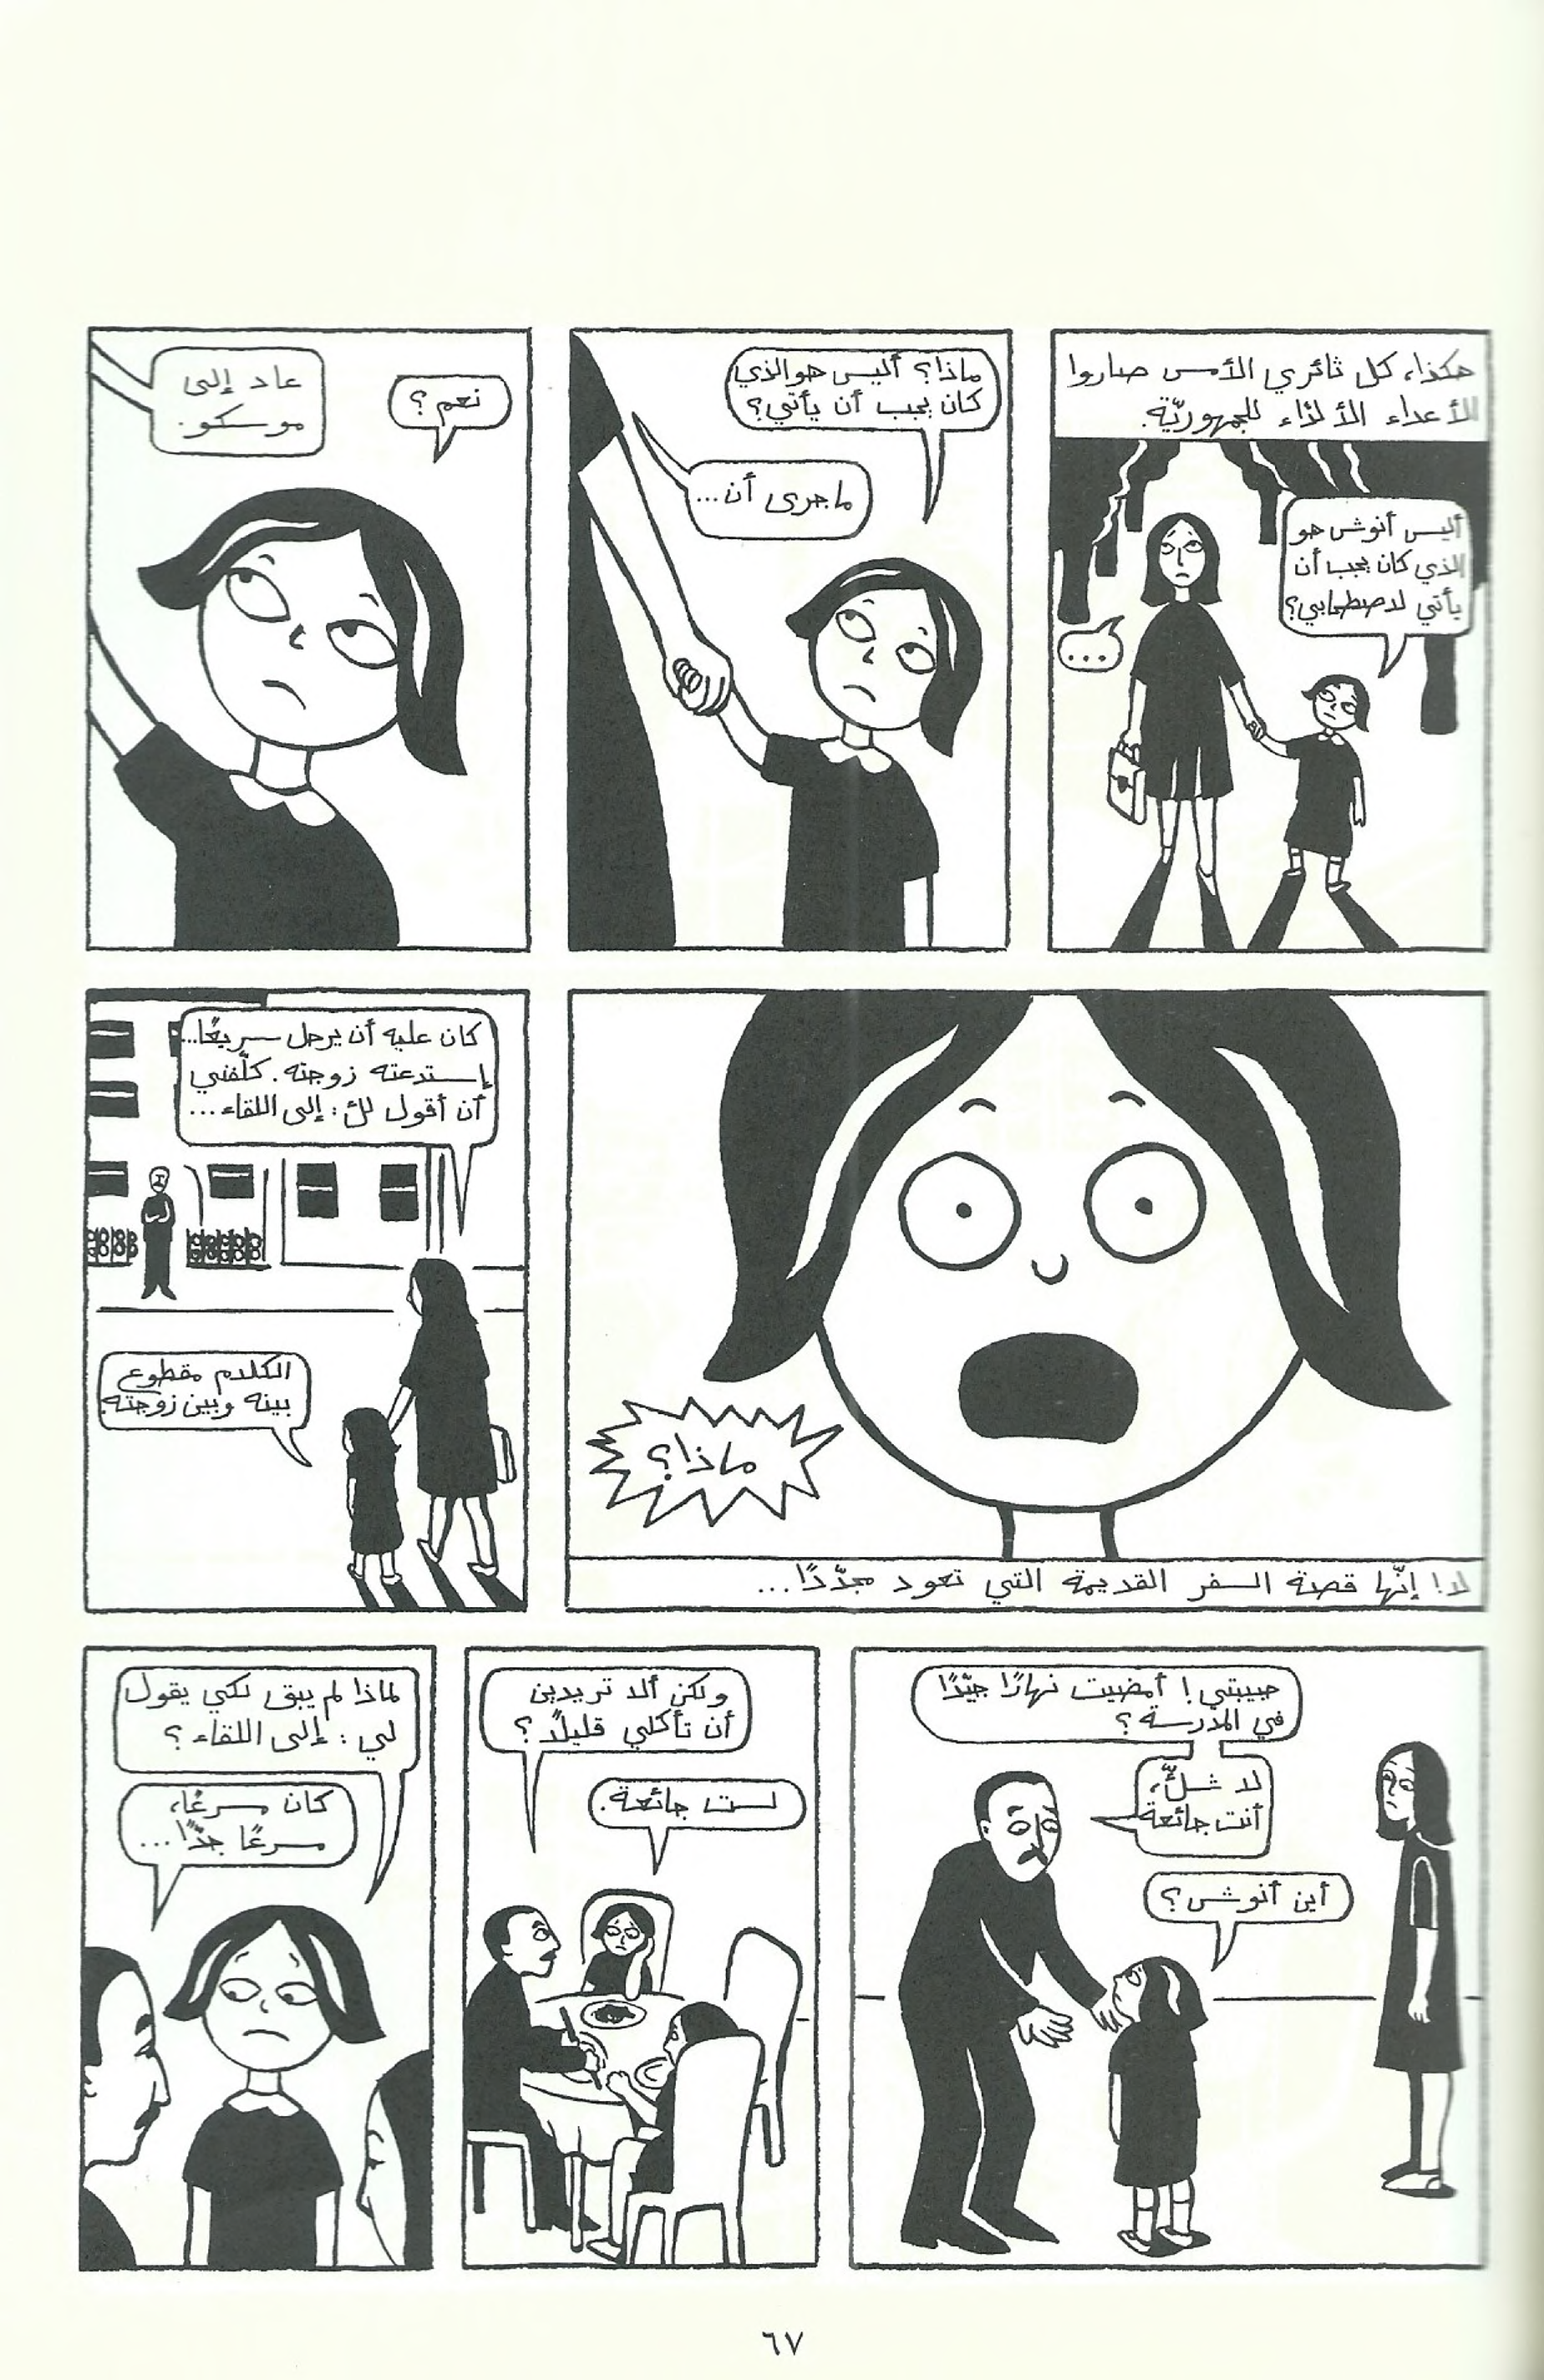 هكذا، كل ثائري الأمس صاروا
الأعداء الألدّاء للجمهوريّة.
أليس أنوش هو
الذي كان يجب أن
يأتي لاصطحابي؟
...
ماذا؟ أليس هو الذي
كان يجب أن يأتي؟
ما جرى أن...
نعم؟
عاد إلى
موسكو.
ماذا؟
لا! إنّها قصة السفر القديمة التي تعود مجدّدًا...
كان عليه أن يرحل سريعًا...
إستدعته زوجته. كلّفني
أن أقول لك: إلى اللقاء...
الكلام مقطوع
بينه وبين زوجته.
حبيبتي! أمضيت نهارًا جيّدًا
في المدرسة؟
لا شكّ،
أنت جائعة
أين أنوش؟
ولكن ألا تريدين
أن تأكلي قليلًا؟
لست جائعة.
لماذا لم يبق لكي يقول
لي: إلى اللقاء؟
كان مسرعًا،
مسرعًا جدًّا...
٦٧